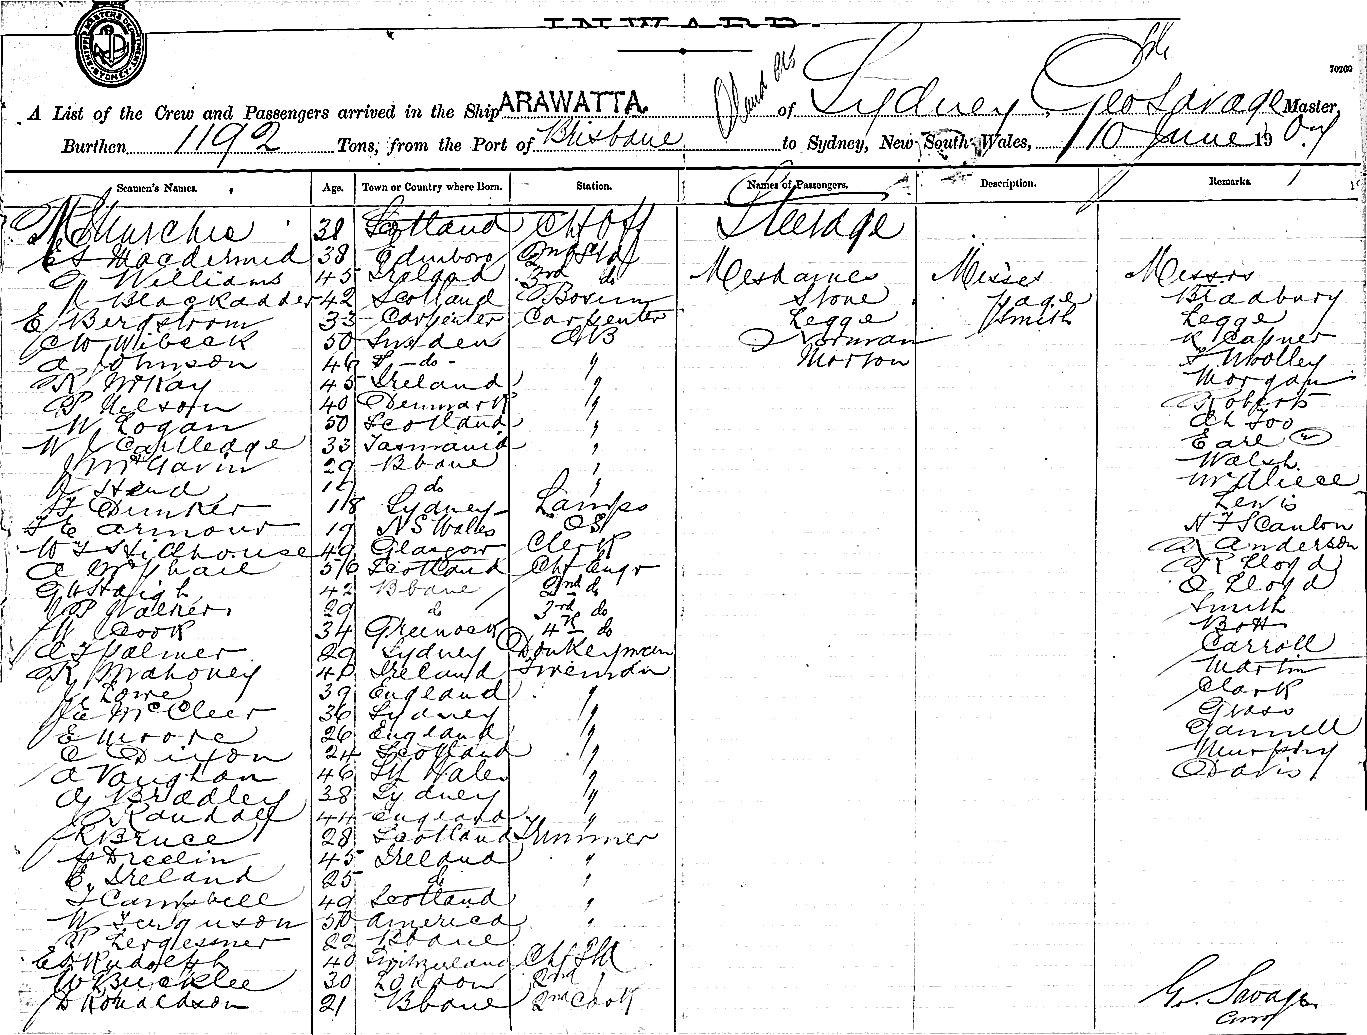 INWARD.
SHIPPING MASTER'S OFFICE SYDNEY
70202
A List of the Crew and Passengers arrived in the Ship ARAWATTA. of Sydney, Geo Savage Master,
Burthen 1192 Tons, from the Port of Brisbane to Sydney, New South Wales, 10 June 1907
Seamen's Names. Age. Town or Country where Born. Station. Names of Passengers. Description. Remarks.
38 Scotland Ch Off Steerage
Macdermid 38 Edinboro 2nd
Williams 45 Ireland 3rd do Mesdames Misses Messrs
Blackadder 42 Scotland Stone Page Bradbury
E Bergstrom 33 Carpenter Carpenter Legge Smith Legge
C W Wibeck 50 Sweden AB Norman
A Johnson 46 do " Morton Wholley
R McKay 45 Ireland " Morgan
P Nelson 40 Denmark " Roberts
W Logan 50 Scotland " Ah Foo
W J Cartledge 33 Tasmania " Earl
J McGavin 29 Bbane " Walsh
Hand do "
Dunker 18 Sydney Lamps Lewis
Armour 19 N S Wales OS Scanlon
49 Glasgow Clerk Anderson
A McPhail 56 Scotland Chf Engr R Lloyd
G W Haigh 42 Bbane 2nd do Lloyd
Walker 29 do 3rd do Smith
W Cook 34 Greenock 4th do Bott
Palmer 29 Sydney Donkeyman Carroll
R Mahoney 40 Ireland Firemen Martin
Lowe 39 England " Clark
McCleer 36 Sydney " Gross
E Moore 26 England " Gannell
C Dixon 24 Scotland " Murphy
A Vaughan 46 Wales " Davis
Bradley 38 Sydney "
Randall 44 England "
R Bruce 28 Scotland Trimmer
Dreelin 45 Ireland "
E. Ireland 25 do "
Campbell 49 Scotland "
W Ferguson 50 America "
22 Bbane
Rudolph 40 Switzerland Chf
W Bucklee 30 London 2nd
D Ronaldson 21 Bbane 2nd Cook
G. Savage